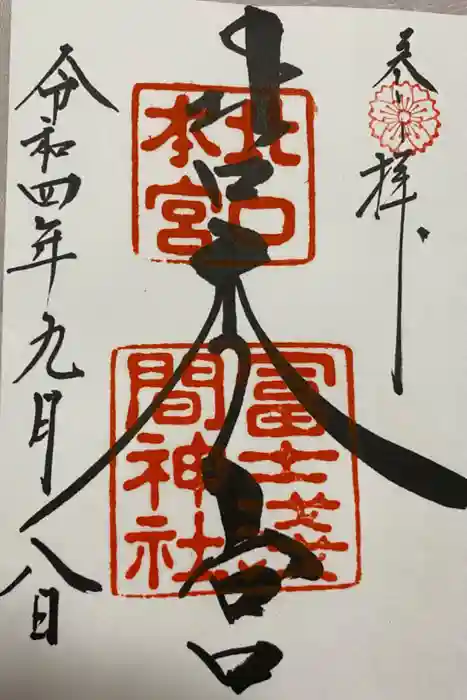 参拝
北口本宮
北口
本宮
冨士淺
間神社
令和四年九月八日